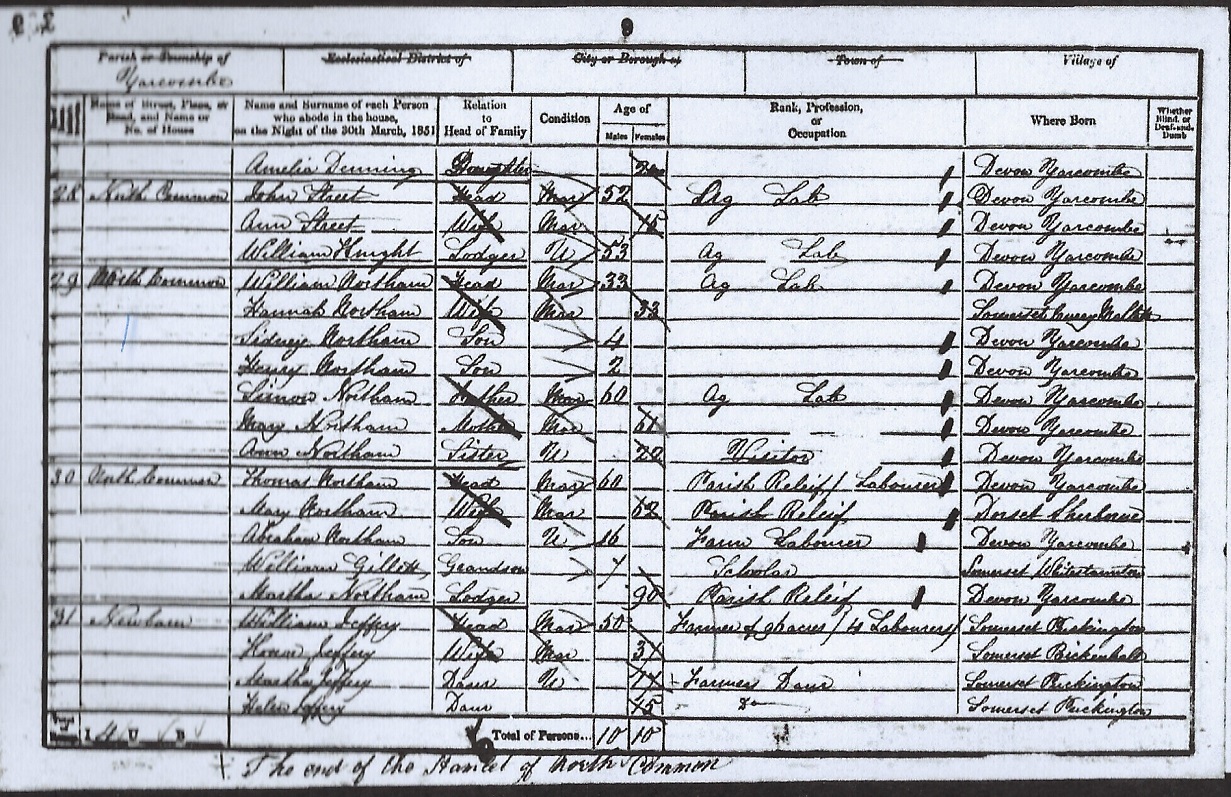 9
Parish or Township of Ecclesiastical District of City or Borough of Town of Village of
Yarcombe
Name of Street, Place, or Road, and Name or No. of House Name and Surname of each Person who abode in the house, on the Night of the 30th March, 1851 Relation to Head of Family Condition Age of Males Females Rank, Profession, or Occupation Where Born Whether Blind, or Deaf-and-Dumb
Amelia Denning Daughter Devon Yarcombe
28 North Common John Street Head Mar 52 Ag Lab Devon Yarcombe
Ann Street Wife Mar Devon Yarcombe
William Knight Lodger U 53 Ag Lab Devon Yarcombe
29 North Common William Northam Head Mar 33 Ag Lab Devon Yarcombe
Hannah Northam Wife Mar 33 Somerset Curry Mallett
Sidney Northam Son 4 Devon Yarcombe
Henry Northam Son 2 Devon Yarcombe
Simon Northam Father Mar 60 Ag Lab Devon Yarcombe
Mary Northam Mother Mar 61 Devon Yarcombe
Ann Northam Sister U 22 Visitor Devon Yarcombe
30 North Common Thomas Northam Head Mar 60 Parish Releif / Labourer Devon Yarcombe
Mary Northam Wife Mar 52 Parish Releif Dorset Sherborne
Abraham Northam Son U 16 Farm Labourer Devon Yarcombe
William Gillett Grandson 7 Scholar Somerset Whitestaunton
Martha Northam Lodger 90 Parish Releif Devon Yarcombe
31 Newbarn William Jeffery Head Mar 50 Farmer of 96 acres / 4 Labourers / Somerset Puckington
Jeffery Wife Mar 37 Somerset Bickenhall
Martha Jeffery Daur U 17 Farmers Daur Somerset Puckington
Helen Jeffery Daur 15 Do Somerset Puckington
I 4 U B Total of Persons... 10 10
The end of the Hamlet of North Common